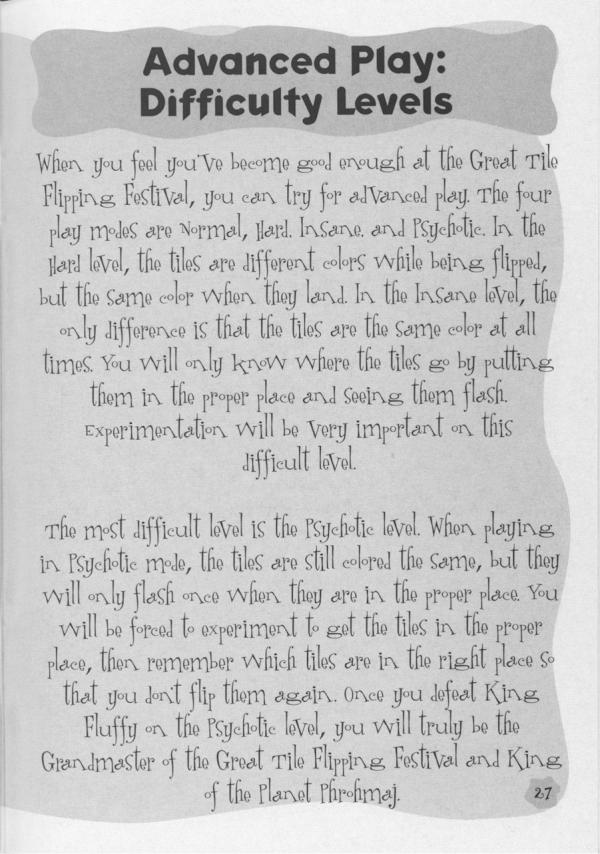 Advanced Play:
Difficulty Levels
When you feel you've become good enough at the Great Tile
Flipping Festival, you can try for advanced play. The four
play modes are Normal, Hard, Insane, and Psychotic. In the
Hard level, the tiles are different colors while being flipped,
but the same color when they land. In the Insane level, the
only difference is that the tiles are the same color at all
times. You will only know where the tiles go by putting
them in the proper place and seeing them flash.
Experimentation will be very important on this
difficult level.
The most difficult level is the Psychotic level. When playing
in Psychotic mode, the tiles are still colored the same, but they
will only flash once when they are in the proper place. You
will be forced to experiment to get the tiles in the proper
place, then remember which tiles are in the right place so
that you don't flip them again. Once you defeat King
Fluffy on the Psychotic level, you will truly be the
Grandmaster of the Great Tile Flipping Festival and King
of the Planet Phrohmaj.
27